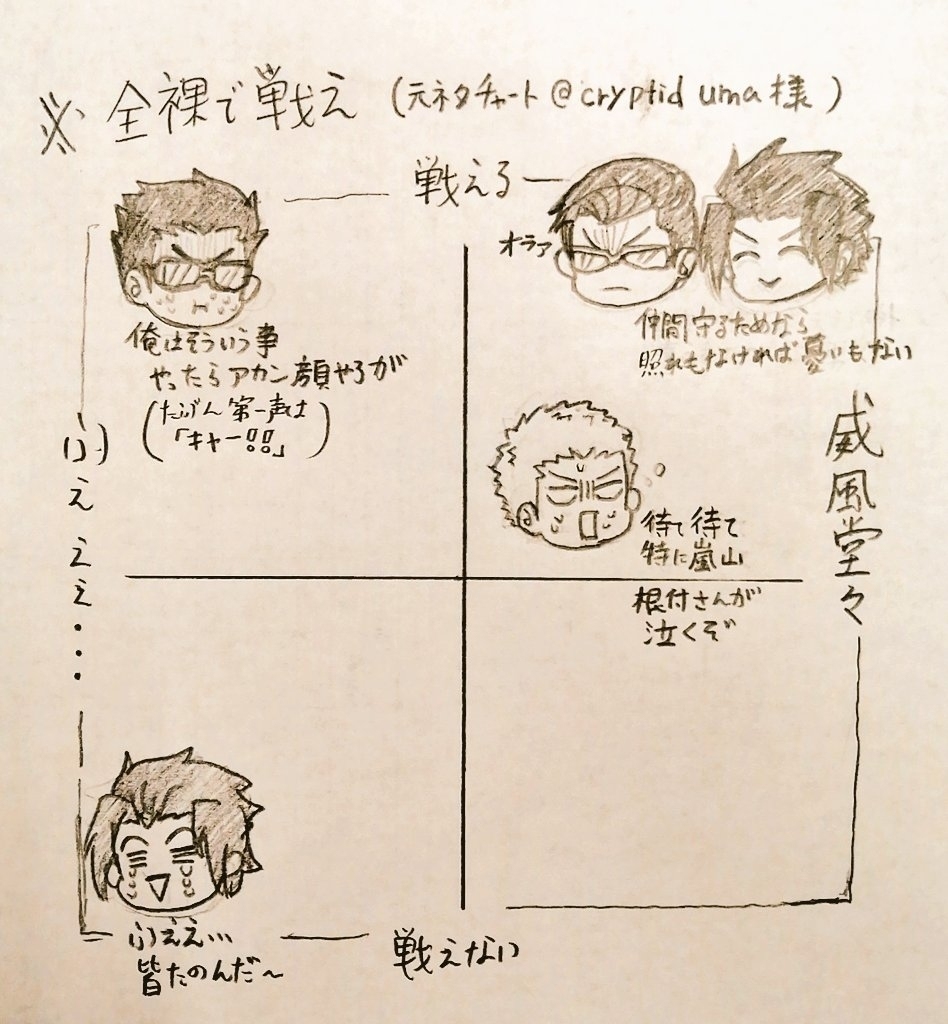 ※ 全裸で戦え (元ネタチャート@cryptid uma様)
戦える
オラァ
俺はそういう事
やったらアカン顔やろが
(たぶん第一声は
「キャー!!」)
仲間守るためなら
照れもなければ憂いもない
待て待て
特に嵐山
根付さんが
泣くぞ
ふえええ・・・
威風堂々
ふええ…
皆たのんだ〜
戦えない